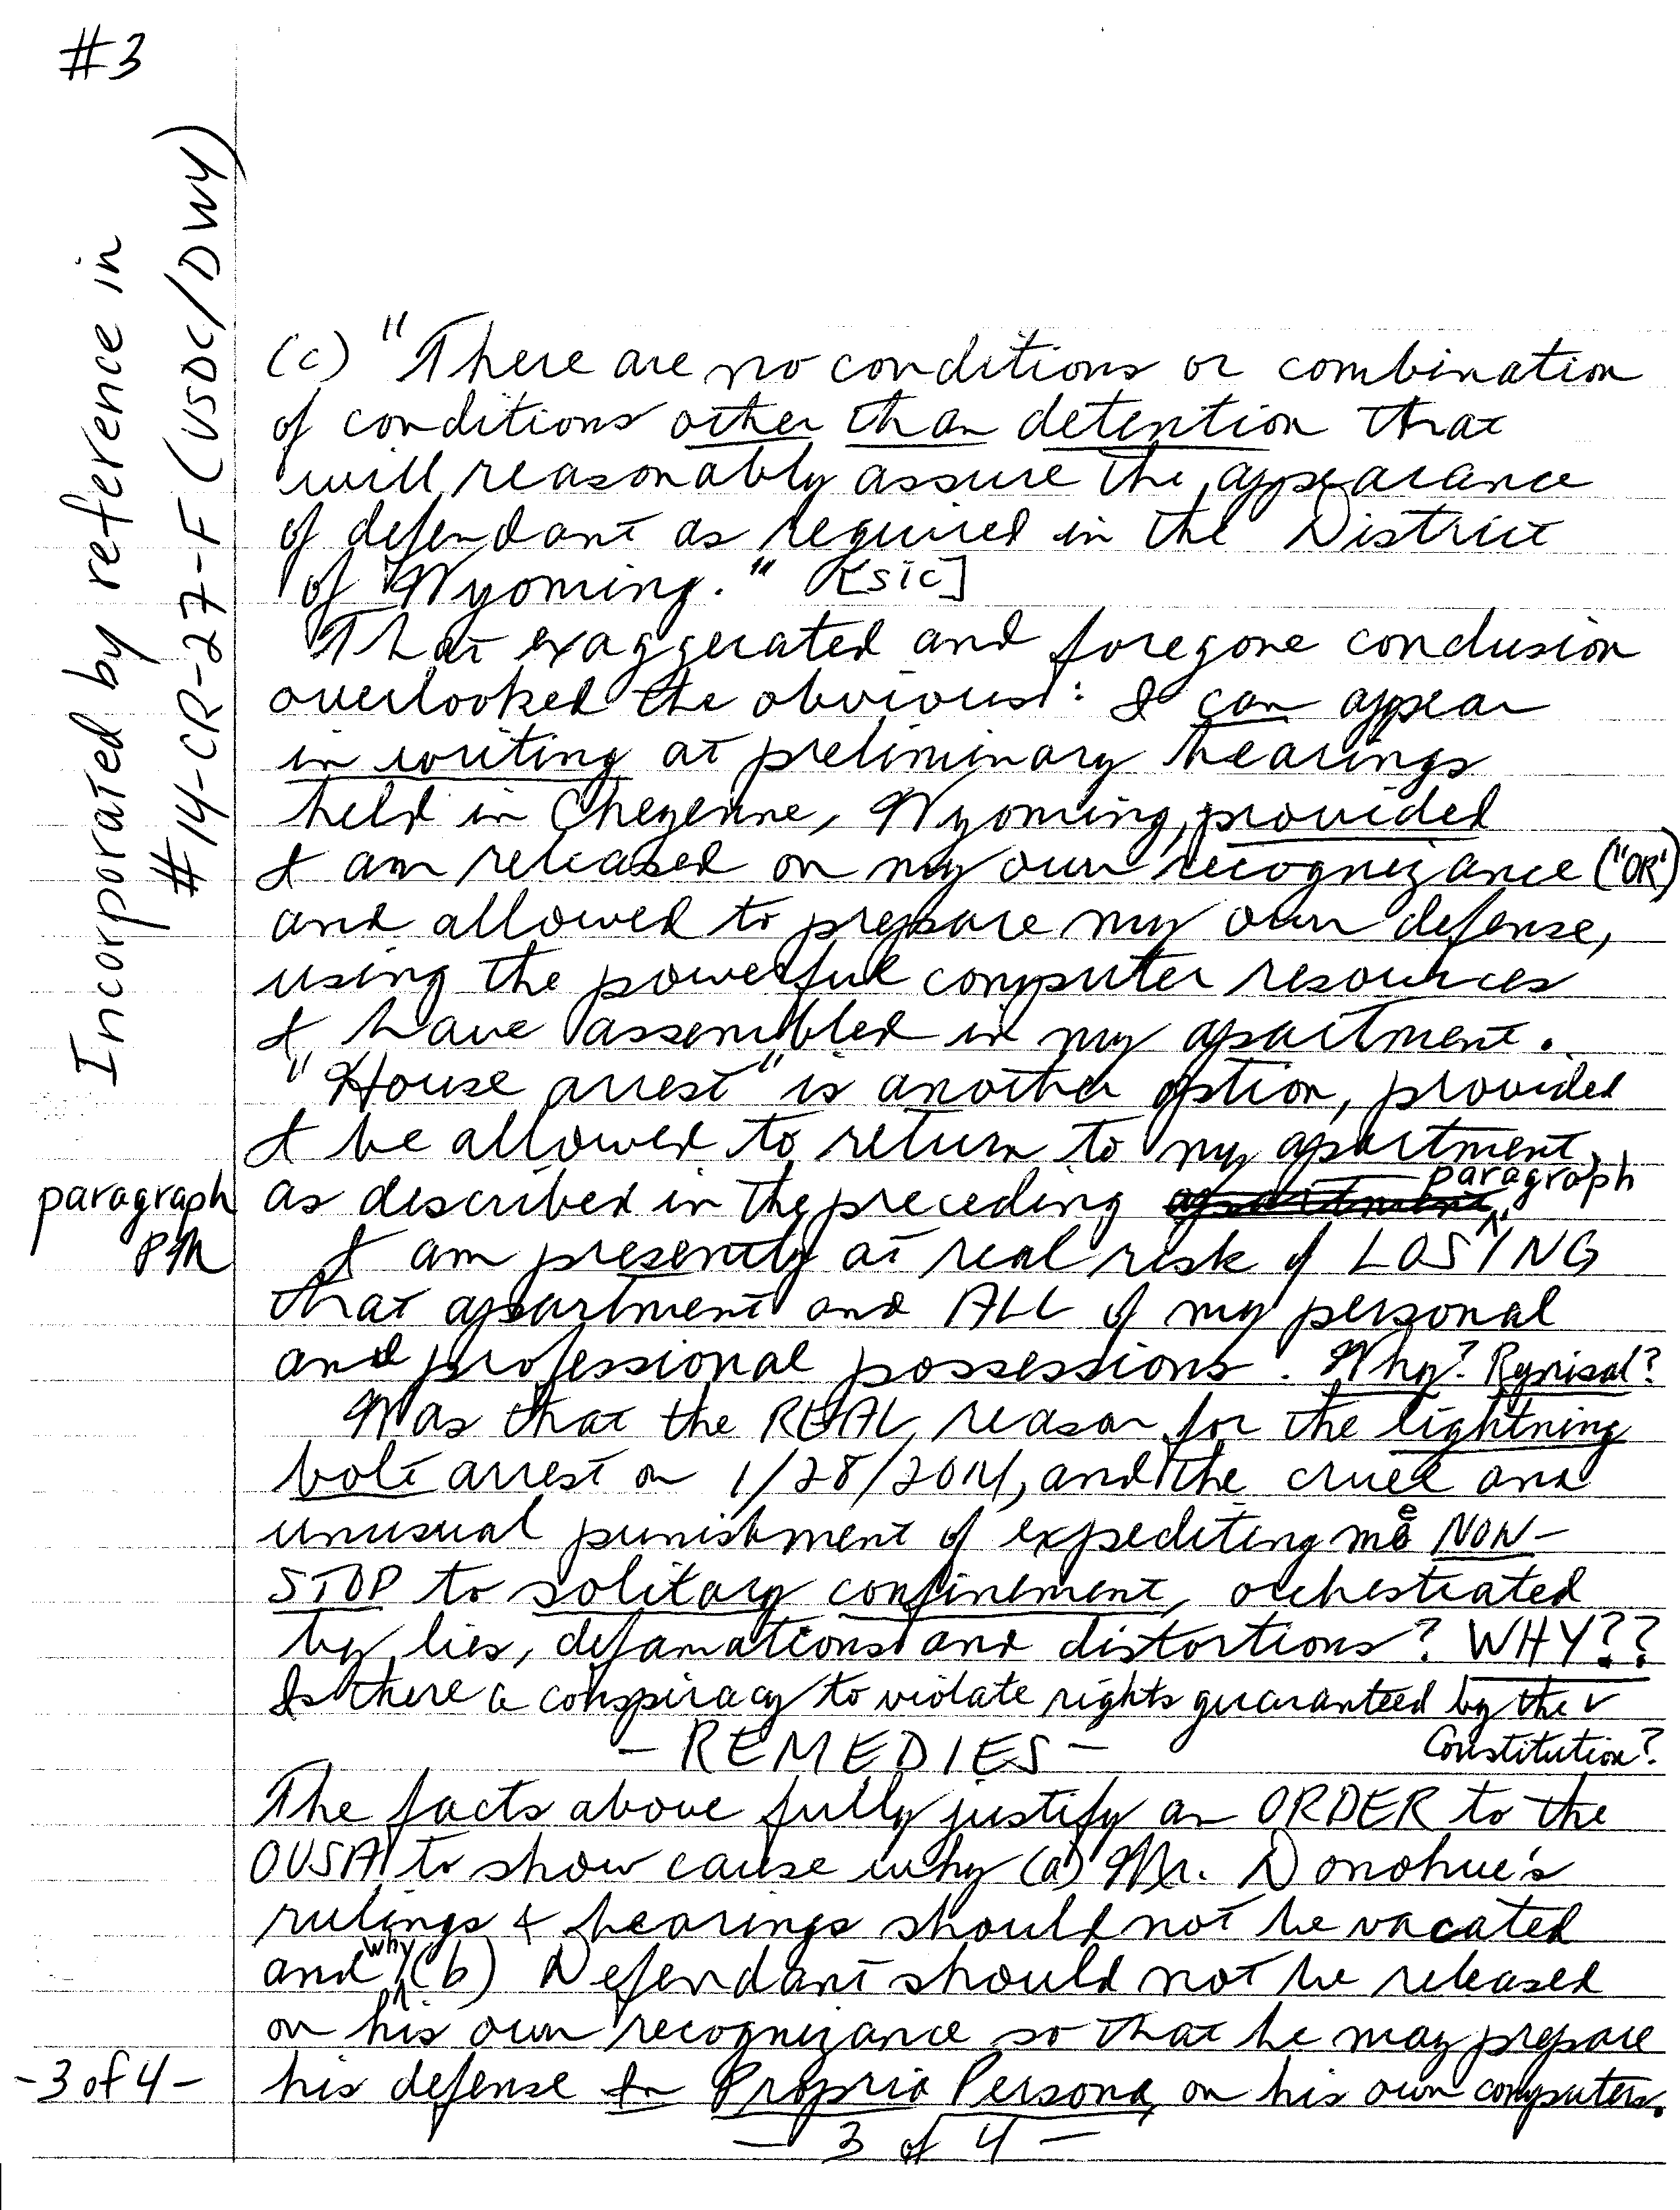 #3
Incorporated by reference in
#14-CR-27-F (USDC/DWY)
(c) "There are no conditions or combination
of conditions other than detention that
will reasonably assure the appearance
of defendant as required in the District
of Wyoming." [sic]
That exaggerated and foregone conclusion
overlooked the obvious: I can appear
in writing at preliminary hearings
held in Cheyenne, Wyoming, provided
I am released on my own recognizance ("OR")
and allowed to prepare my own defense,
using the powerful computer resources
I have assembled in my apartment.
"House arrest" is another option, provided
I be allowed to return to my apartment,
paragraph
as described in the preceding apartment
paragraph
PM
I am presently at real risk of LOSING
that apartment and ALL of my personal
and professional possessions. Why? Reprisal?
Was that the REAL reason for the lightning
bolt arrest on 1/28/2014, and the cruel and
unusual punishment of expediting me NON-
STOP to solitary confinement, orchestrated
by lies, defamations and distortions? WHY??
Is there a conspiracy to violate rights guaranteed by the
Constitution?
- REMEDIES -
The facts above fully justify an ORDER to the
OUSA to show cause why (a) Mr. Donohue's
rulings & hearings should not be vacated
and why (b) Defendant should not be released
on his own recognizance so that he may prepare
his defense In Propria Persona, on his own computers.
-3 of 4-
- 3 of 4 -